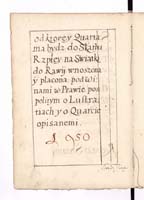 od ktorey Quarta
ma bydz do Skarbu
Rzpltey na Swiątki
do Rawÿ wnoszona
y płacona podwi-
nami w Prawie pos-
politym o Lustra-
tiach y o Quarcie
opisanemi.
1950